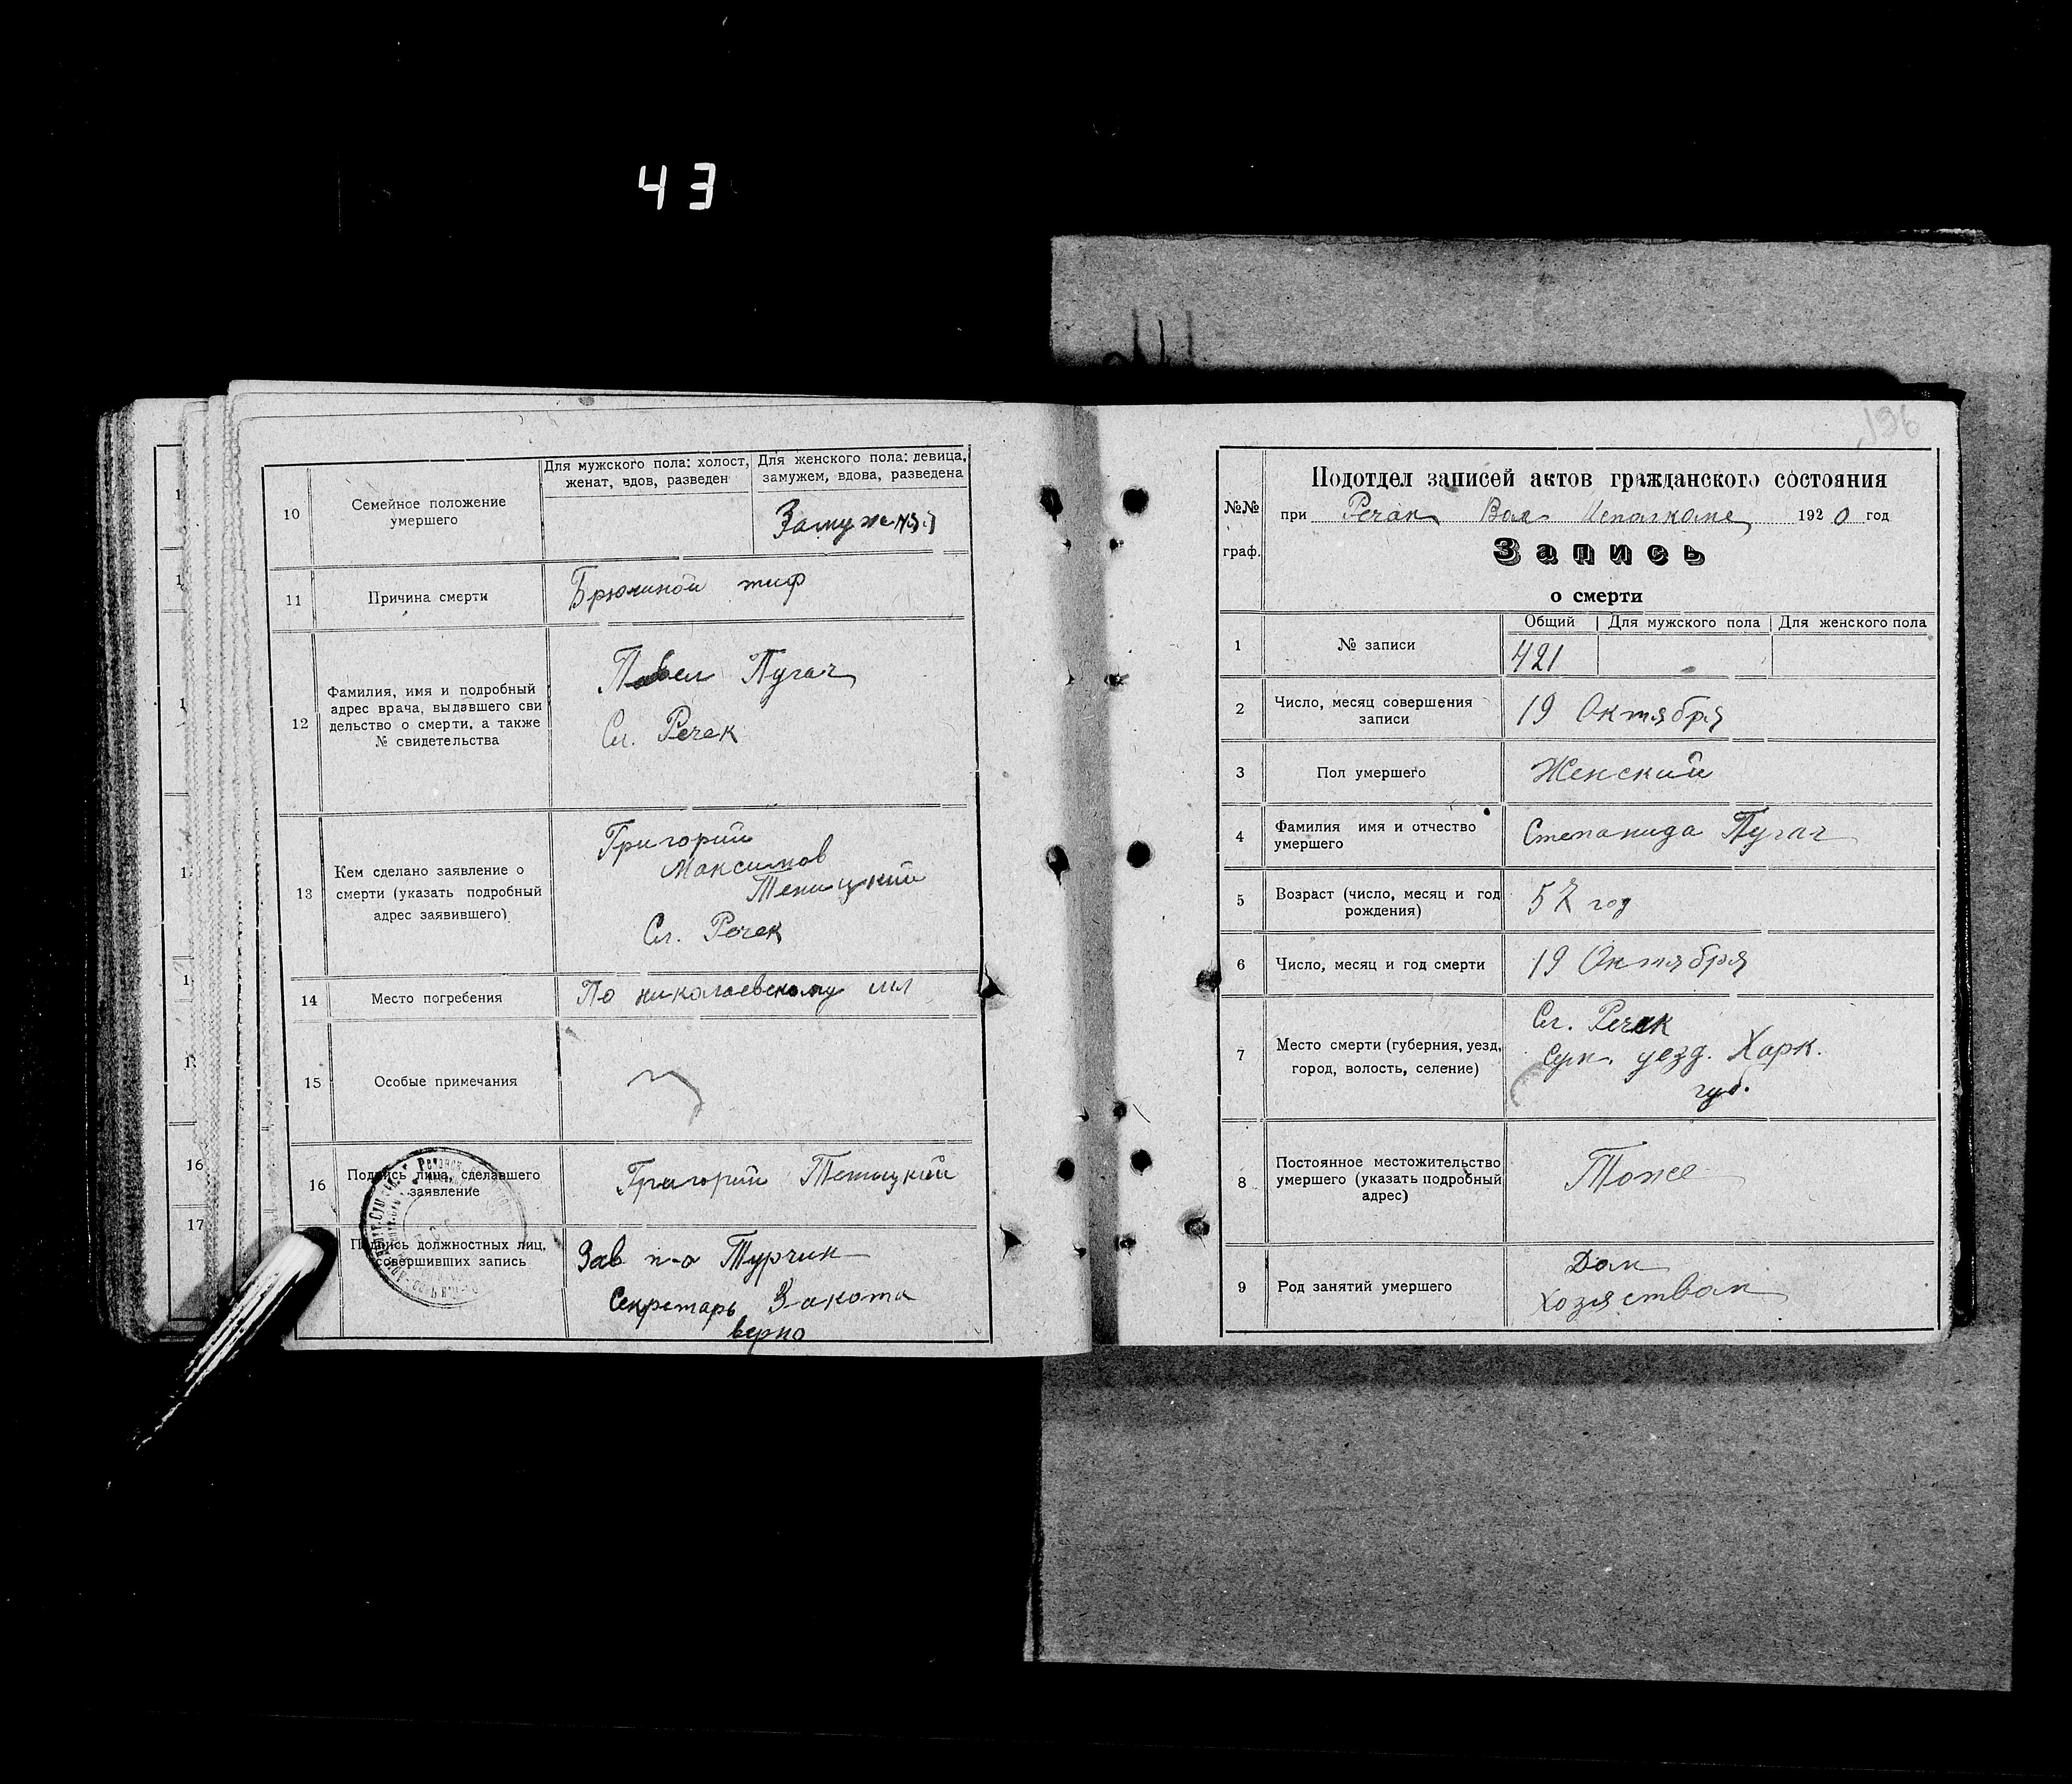 43
10
Семейное положение
умершего
Для мужского пола: холост,
женат, вдов, разведен
Для женского пола: девица,
замужем, вдова, разведена
Замужняя
11
Причина смерти
Брюшной тиф
12
Фамилия, имя и подробный
адрес врача, выдавшего сви
дельство о смерти, а также
№ свидетельства
Павел Пугач
Сл. Речек
13
Кем сделано заявление о
смерти (указать подробный
адрес заявившего)
Григорий
Максимов
Сл. Речек
14
Место погребения
По николаевскому
15
Особые примечания
16
Подпись лица, сделавшего
заявление
Григорий
Подпись должностных лиц,
совершивших запись
Зав п-о Турчин
Секретарь
верно
16
17
196
№№
граф.
Подотдел записей актов гражданского состояния
при Речан Вол Исполкоме 1920 год
Запись
о смерти
1
№ записи
Общий
Для мужского пола
Для женского пола
421
2
Число, месяц совершения
записи
19 Октября
3
Пол умершего
Женский
4
Фамилия имя и отчество
умершего
Степанида Пугач
5
Возраст (число, месяц и год
рождения)
57 год
6
Число, месяц и год смерти
19 Октября
7
Место смерти (губерния, уезд,
город, волость, селение)
Сл. Речек
Сум. уезд. Харк.
губ.
8
Постоянное местожительство
умершего (указать подробный
адрес)
Тоже
9
Род занятий умершего
Дом
хозяйством